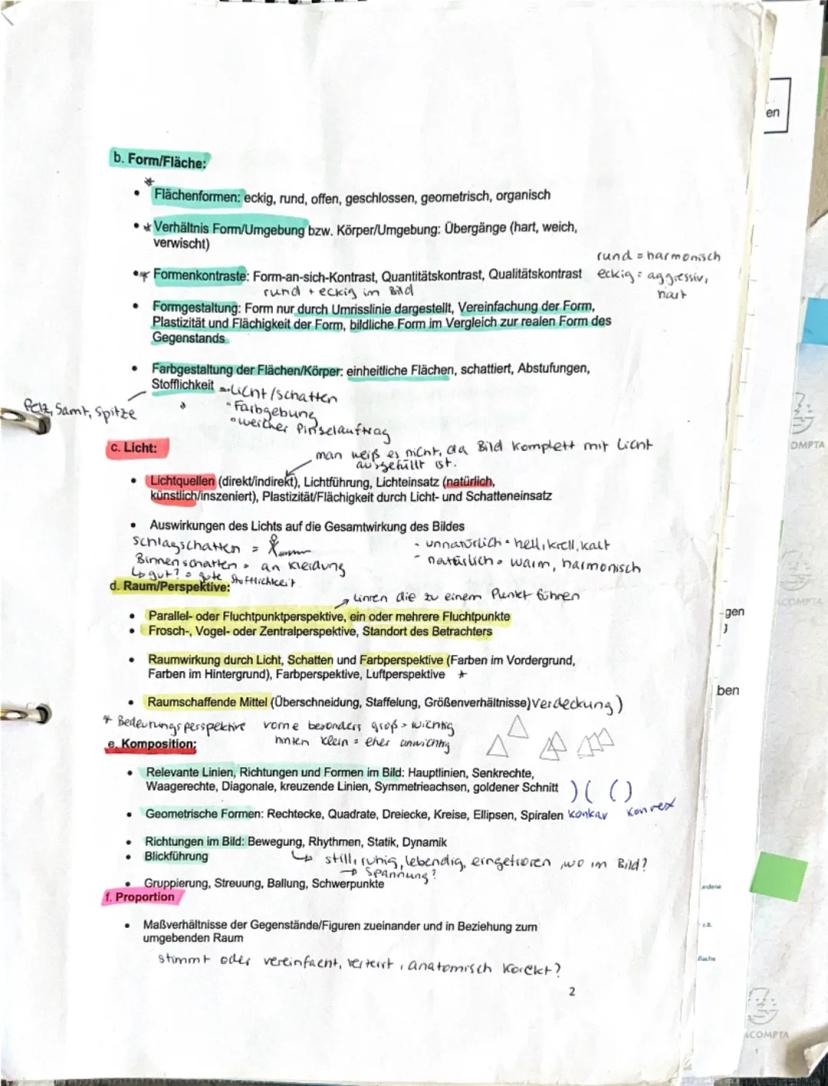 en
b. Form/Fläche:
* 
• Flächenformen: eckig, rund, offen, geschlossen, geometrisch, organisch
• * Verhältnis Form/Umgebung bzw. Körper/Umgebung: Übergänge (hart, weich,
verwischt)
rund = harmonisch
• * Formenkontraste: Form-an-sich-Kontrast, Quantitätskontrast, Qualitätskontrast
eckig = aggressiv,
hart
rund + eckig im Bild
• Formgestaltung: Form nur durch Umrisslinie dargestellt, Vereinfachung der Form,
Plastizität und Flächigkeit der Form, bildliche Form im Vergleich zur realen Form des
Gegenstands
• Farbgestaltung der Flächen/Körper: einheitliche Flächen, schattiert, Abstufungen,
Stofflichkeit
- Licht/Schatten
Pelz, Samt, Spitze
- Farbgebung
- weicher Pinselauftrag
c. Licht:
man weiß es nicht, da Bild komplett mit Licht
ausgefüllt ist.
• Lichtquellen (direkt/indirekt), Lichtführung, Lichteinsatz (natürlich,
künstlich/inszeniert), Plastizität/Flächigkeit durch Licht- und Schatteneinsatz
• Auswirkungen des Lichts auf die Gesamtwirkung des Bildes
Schlagschatten =
- unnatürlich = hell, krell, kalt
Binnenschatten = an Kleidung
- natürlich = warm, harmonisch
↳ gut? = gute Stofflichkeit
d. Raum/Perspektive:
Linien die zu einem Punkt führen
• Parallel- oder Fluchtpunktperspektive, ein oder mehrere Fluchtpunkte
• Frosch-, Vogel- oder Zentralperspektive, Standort des Betrachters
• Raumwirkung durch Licht, Schatten und Farbperspektive (Farben im Vordergrund,
Farben im Hintergrund), Farbperspektive, Luftperspektive *
• Raumschaffende Mittel (Überschneidung, Staffelung, Größenverhältnisse) Verdeckung)
* Bedeutungsperspektive vorne besonders groß = wichtig
hinten klein = eher unwichtig
e. Komposition:
• Relevante Linien, Richtungen und Formen im Bild: Hauptlinien, Senkrechte,
Waagerechte, Diagonale, kreuzende Linien, Symmetrieachsen, goldener Schnitt )( ()
• Geometrische Formen: Rechtecke, Quadrate, Dreiecke, Kreise, Ellipsen, Spiralen konkav konvex
• Richtungen im Bild: Bewegung, Rhythmen, Statik, Dynamik
• Blickführung
↳ still, ruhig, lebendig, eingefroren, wo im Bild?
→ Spannung?
• Gruppierung, Streuung, Ballung, Schwerpunkte
f. Proportion
• Maßverhältnisse der Gegenstände/Figuren zueinander und in Beziehung zum
umgebenden Raum
stimmt oder vereinfacht, verzerrt, anatomisch korekt?
2
gen
ben
z.B.
OMPTA
ACOMPTA
1